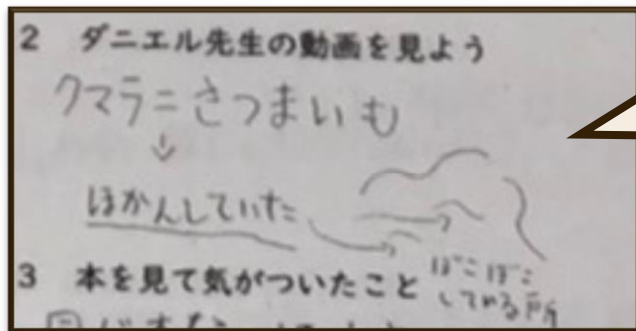 2 ダニエル先生の動画を見よう
クマラ=さつまいも
↓
ほかんしていた
ぼこぼこ
してゐる所
3 本を見て気がついたこと